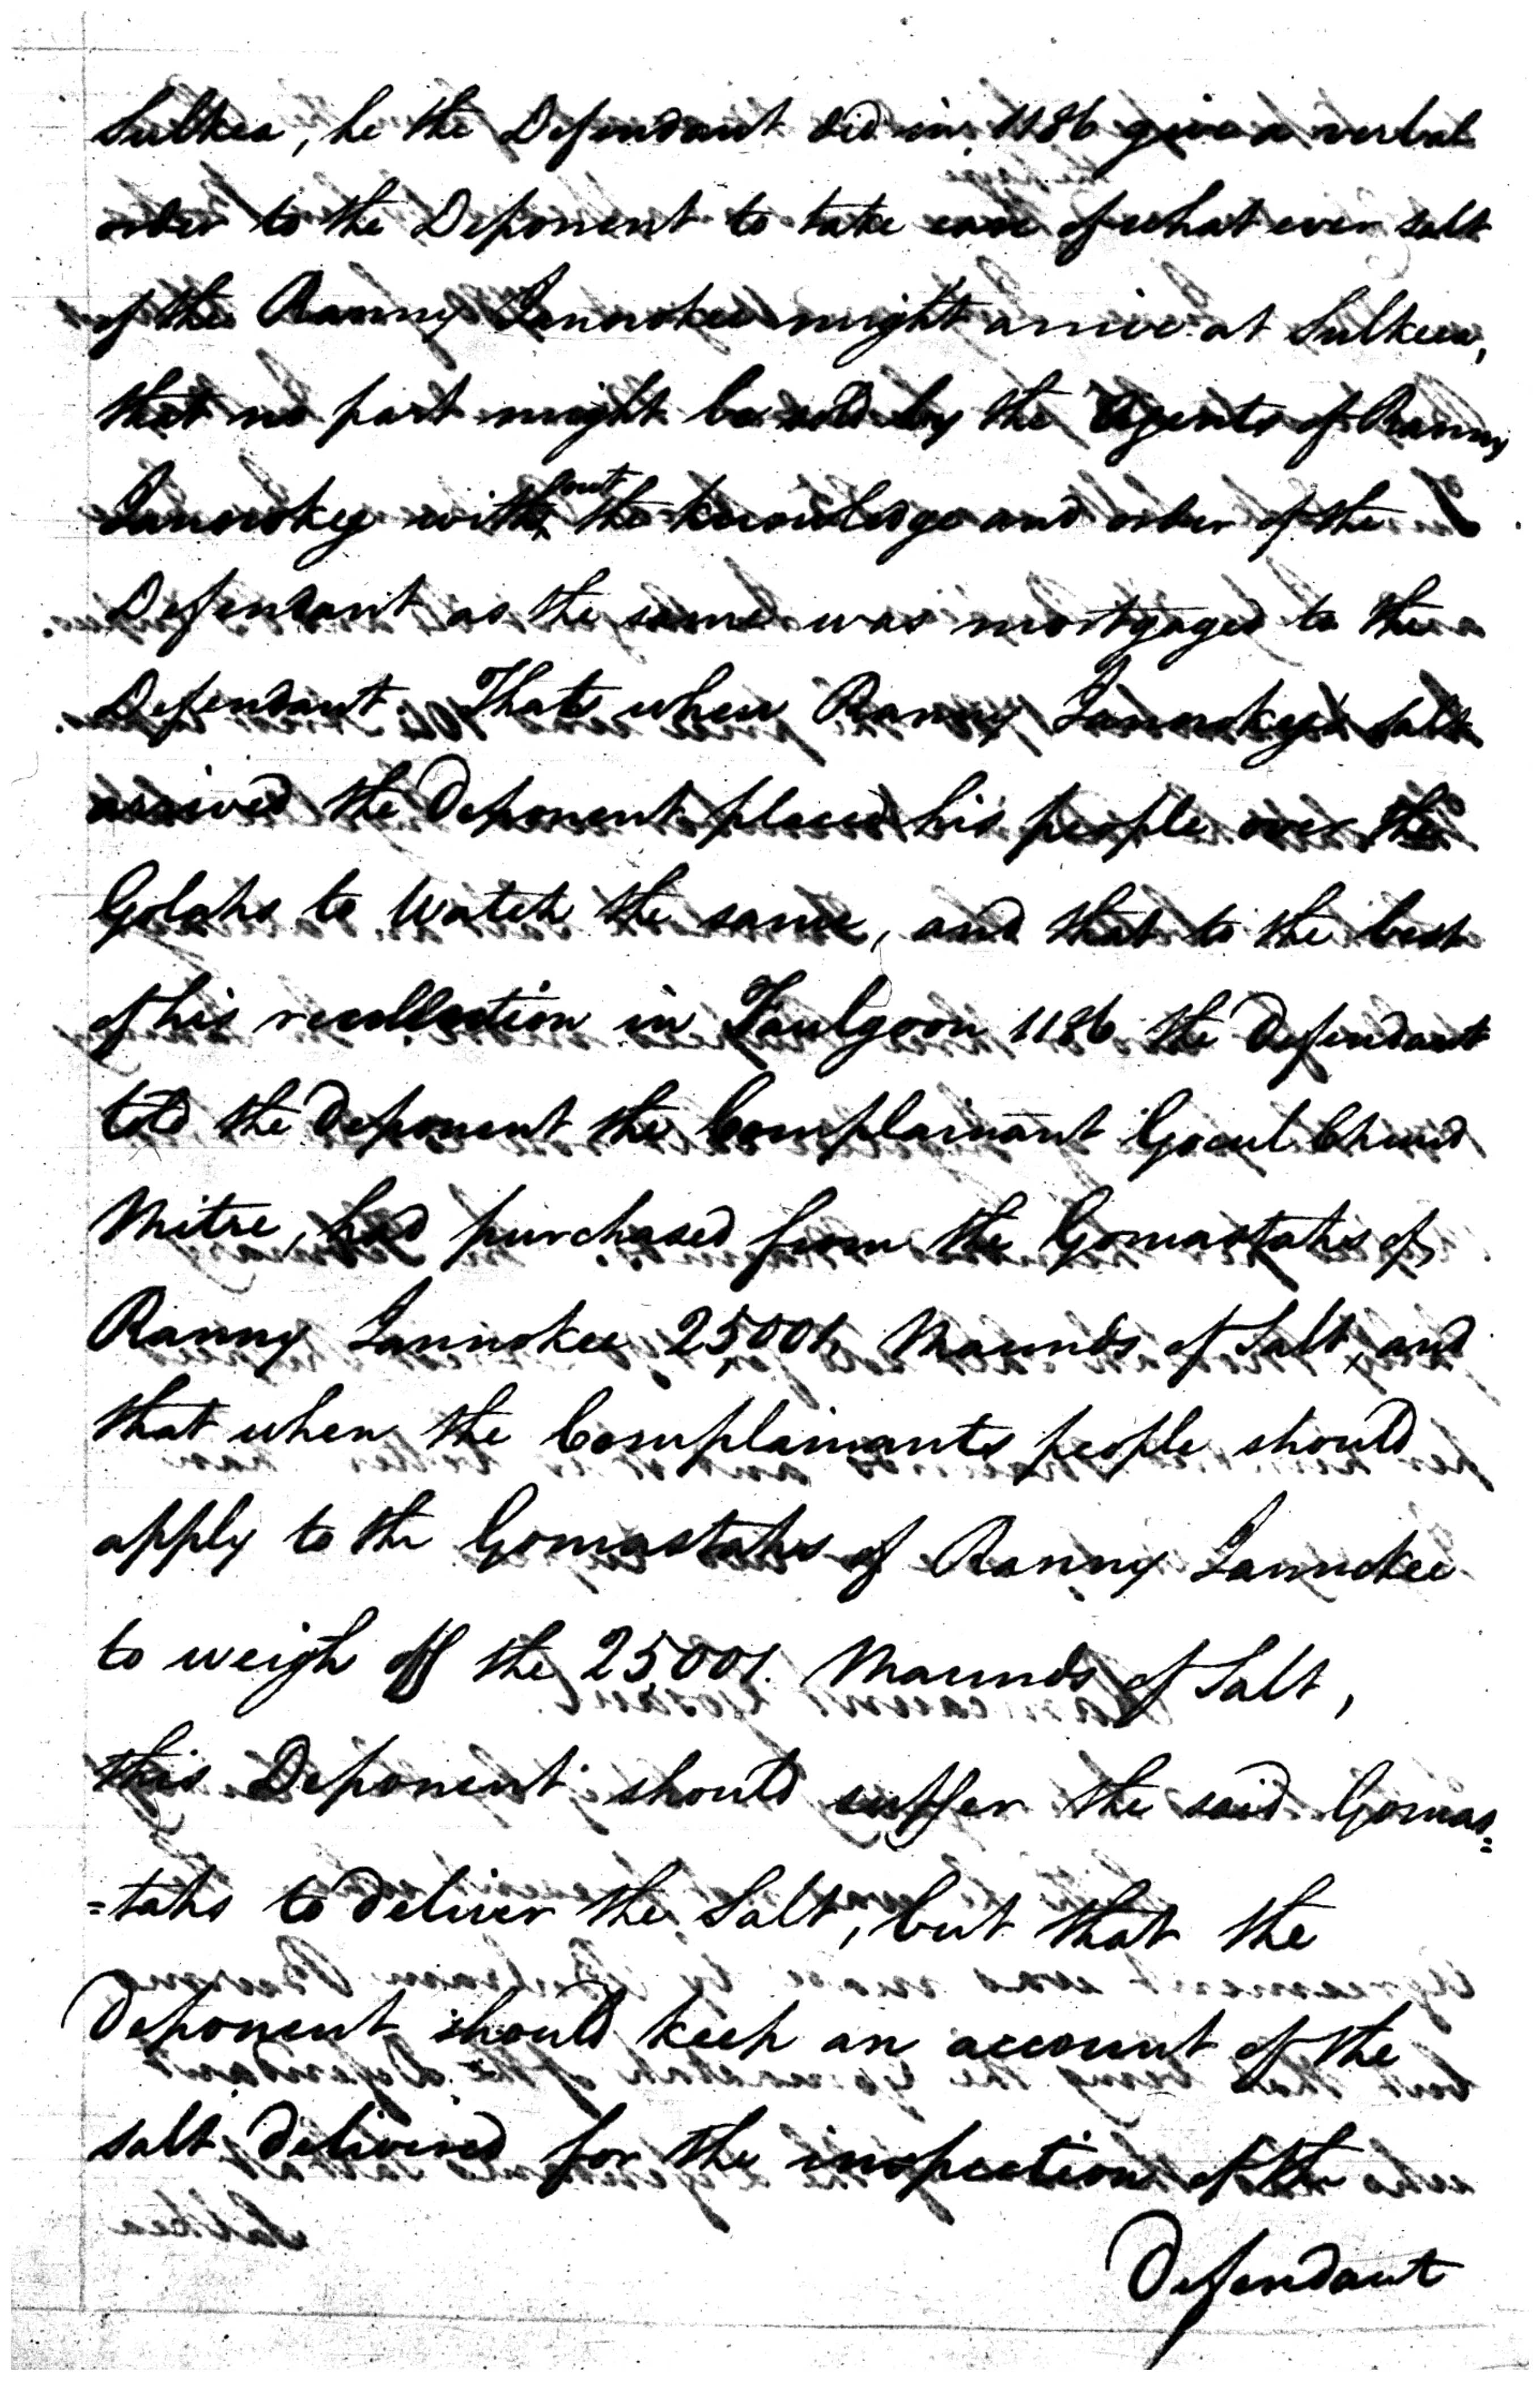 Sulkea, he the Defendant did in 1186 give a verbal
order to the Deponent to take care of what ever salt
of the Ranny Jannokee might arrive at Sulkeea,
that no part might be sold by the Agents of Ranny
Jannokey without the knowledge and order of the
Defendant as the same was mortgaged to the
Defendant. That when Ranny Jannokeys Salt
arrived the Deponent placed his people over the
Golahs to Watch the same, and that to the best
of his recollection in Faulgoon 1186 the Defendant
told the Deponent the Complainant Gocul Chund
Mitre, had purchased from the Gomastahs of
Ranny Jannokee 25,001, Maunds of Salt, and
that when the Complainants people should
apply to the Gomastahs of Ranny Jannokee
to weigh off the 25,001. Maunds of Salt,
this Deponent should suffer the said Gomas=
=tahs to deliver the Salt, but that the
Deponent should keep an account of the
salt delivered for the inspection of the
Defendant